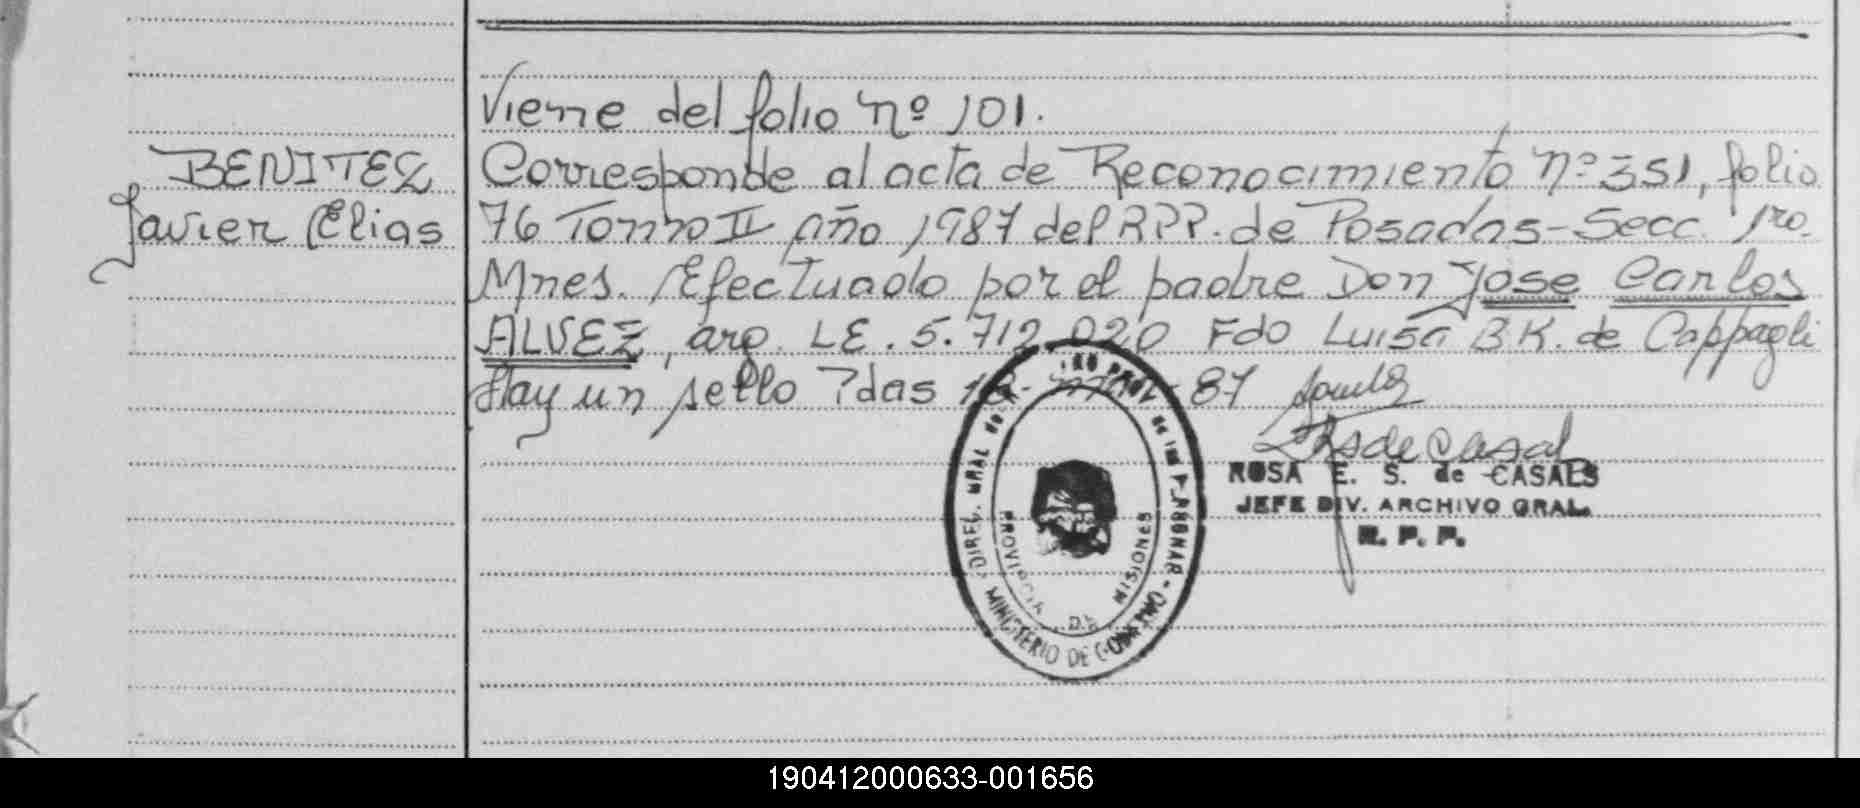 Viene del folio nº 101.
BENITEZ
Javier Elias
Corresponde al acta de Reconocimiento nº 351, folio
76 Tomo II año 1987 del RPP. de Posadas-Secc. 1ro.
Mnes. Efectuado por el padre Don Jose Carlos
ALVEZ, arg. LE. 5.712.020 Fdo Luisa B.K. de Cappagli
Hay un sello Pdas 87
ROSA E. S. de CASALS
JEFE DIV. ARCHIVO GRAL.
R. P. P.
DIREC. GRAL de
PROV. de las
MINISTERIO DE GOBIERNO
PROVINCIA DE MISIONES
190412000633-001656